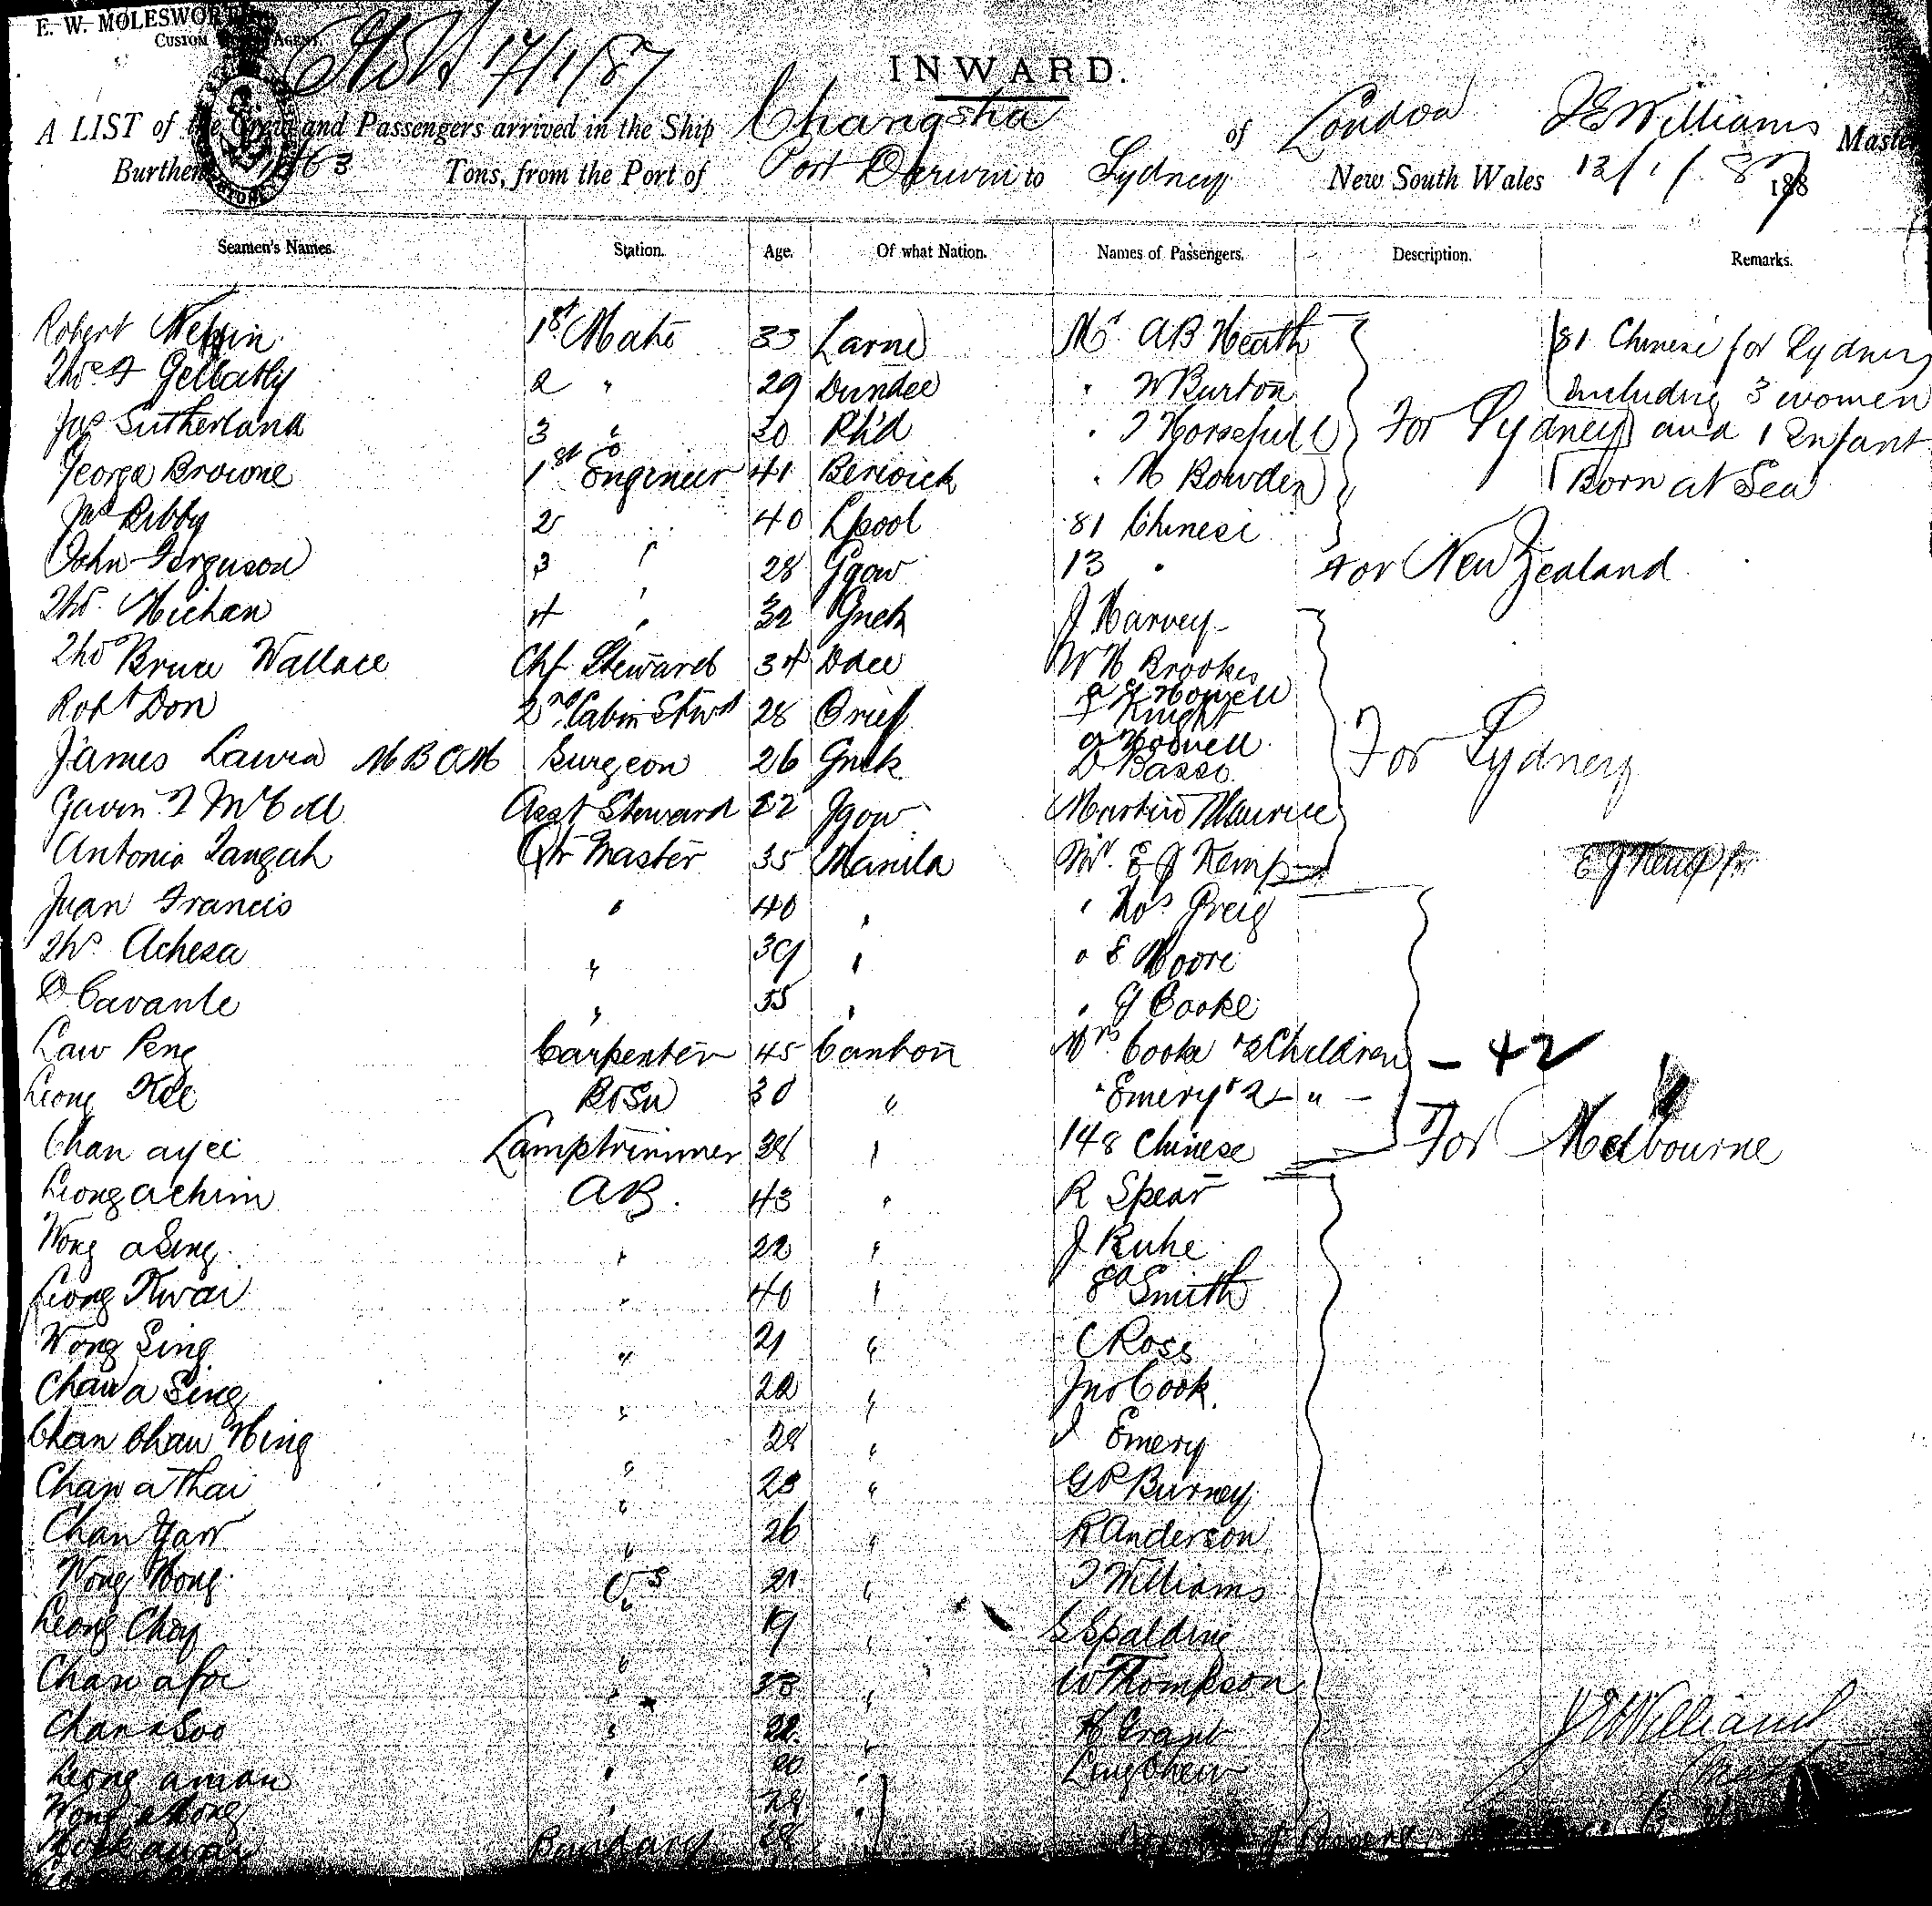 E. W. MOLESWORTH
CUSTOM AGENT
17/1/87
INWARD.
A LIST of the Crew and Passengers arrived in the Ship Changsha of London J E Williams Master
Burthen 1463 Tons, from the Port of Port Darwin to Sydney New South Wales 12/1/87 188
Seamen's Names. Station. Age. Of what Nation. Names of Passengers. Description. Remarks.
Robert 1st Mate 33 Larne Mr A B Heath 81 Chinese for Sydney
Thos F Gellatly 2 " 29 Dundee " W Burton including 3 women
Jas Sutherland 3 " 30 Pt'd " T Horsefull For Sydney and 1 Infant
George Browne 1st Engineer 41 Berwick " H Bowden Born at Sea
Jno Bibby 2 " 40 Lpool 81 Chinese
John Ferguson 3 " 28 Ggow 13 " For New Zealand
Thos Michan 4 " 32 Gnck J Harvey
Thos Bruce Wallace Chf Steward 34 Ddee W H Brookes
Robt Don 2nd Cabin Stwd 28 Crieff Howell
Knight
James Lawra M B C M Surgeon 26 Gnck Howell For Sydney
D Basso
Gavin T McCall Asst Steward 22 Ggow Martin Maurice
Antonio Tangah Qtr Master 35 Manila Mr. E J Kemp E J Kemp
Juan Francis " 40 " " Thos Greig
Ths Achesa " 39 " " E Moore
D Cavante " 35 " " G Cooke
Law Peng Carpenter 45 Canton Mrs Cooke & 2 Children - 42
Leong Kee BoSn 30 " " Emery & 2 "
Chan ayee Lamptrimmer 38 " 148 Chinese For Melbourne
Leong achim AB. 43 " R Spear
Wong a Sing " 22 " J Ruhe
Leong Kwai " 40 " Smith
Wong Sing " 21 " C Ross
Chan a Sing " 22 " Jno Cook.
Chan Chan Hing " 28 " J Emery
Chan a Thai " 23 " G P Burney
Chan Yaw " 26 " R Anderson
Wong Wong OS 21 " T Williams
Leong Choy " 19 " S Spalding
Chan a foi " 23 " W Thompson
Chan a Soo " 22 " H Grant J E Williams
Leong aman " 20 " Ling Chew
Wong a " 24 "
28